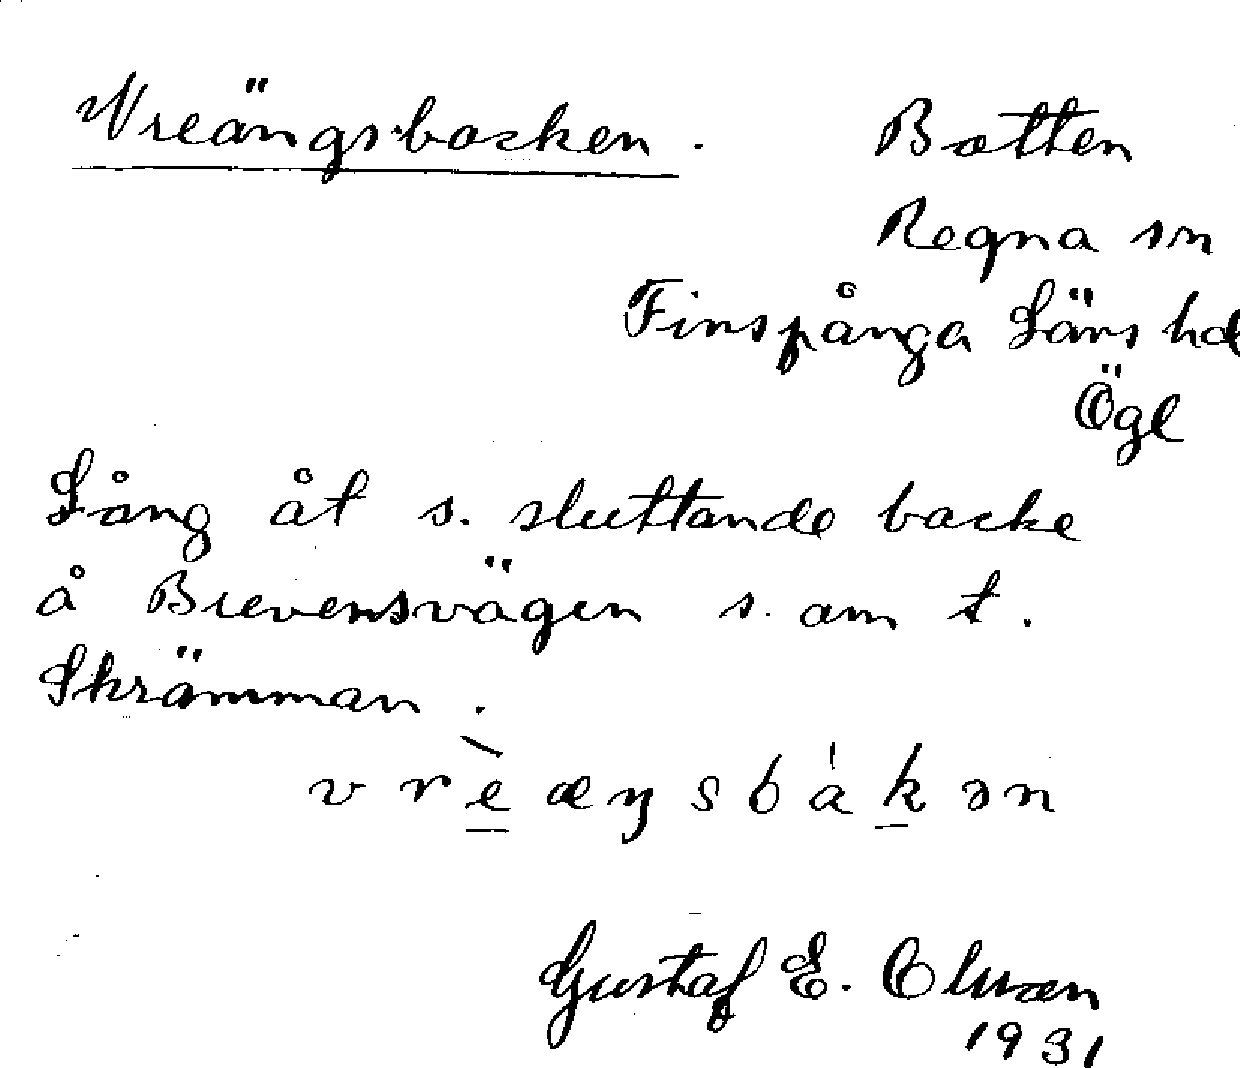 Wreängsbacken. Botten
Regna sn
Finspånga Läns hd
Ögl
Lång åt s. sluttande backe
å Brevensvägen s. om t.
Skrämman.
vrèæŋsbákən
Gustaf E. Olsson
1931